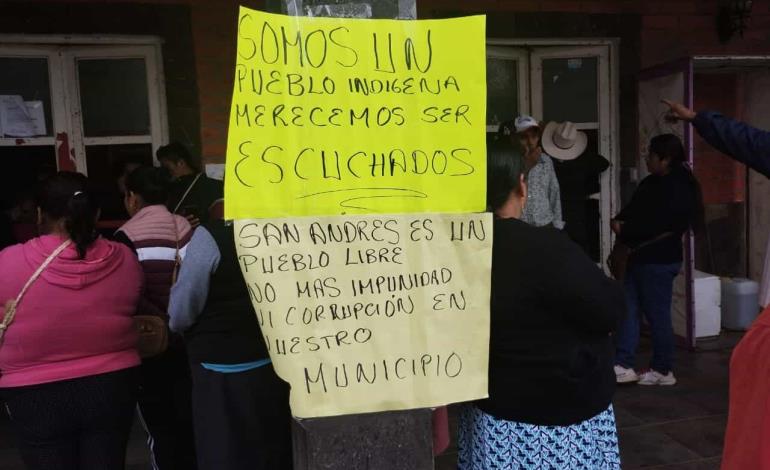 SOMOS UN
PUEBLO INDIGENA
MERECEMOS SER
ESCUCHADOS
SAN ANDRES ES UN
PUEBLO LIBRE
NO MAS IMPUNIDAD
NI CORRUPCIÓN EN
NUESTRO
MUNICIPIO